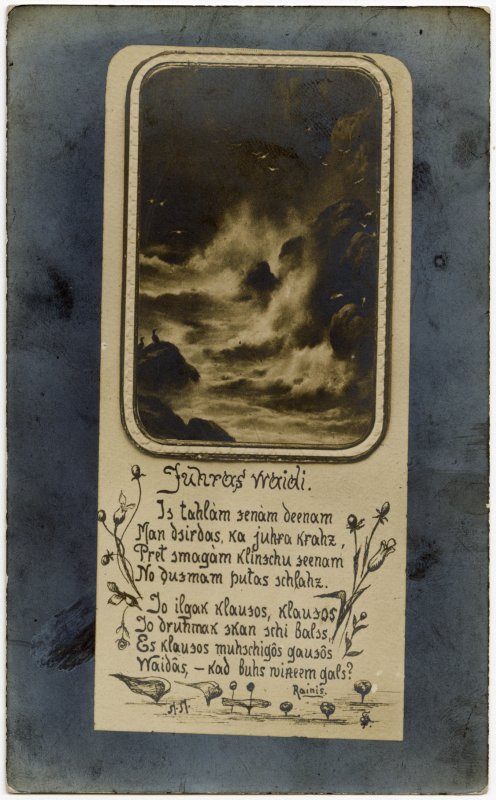 Juhras waidi.
Is tahlàm senàm deenam
Man dsirdas, ka juhra krahz,
Pret smagàm klinschu seenam
No dusmam putas schlahz.
Jo ilgak klausos, klausos
Jo druhmak skan schi balss,
Es klausos muhschigôs gausôs
Waidàs, – kad buhs wiņeem gals?
Rainis.